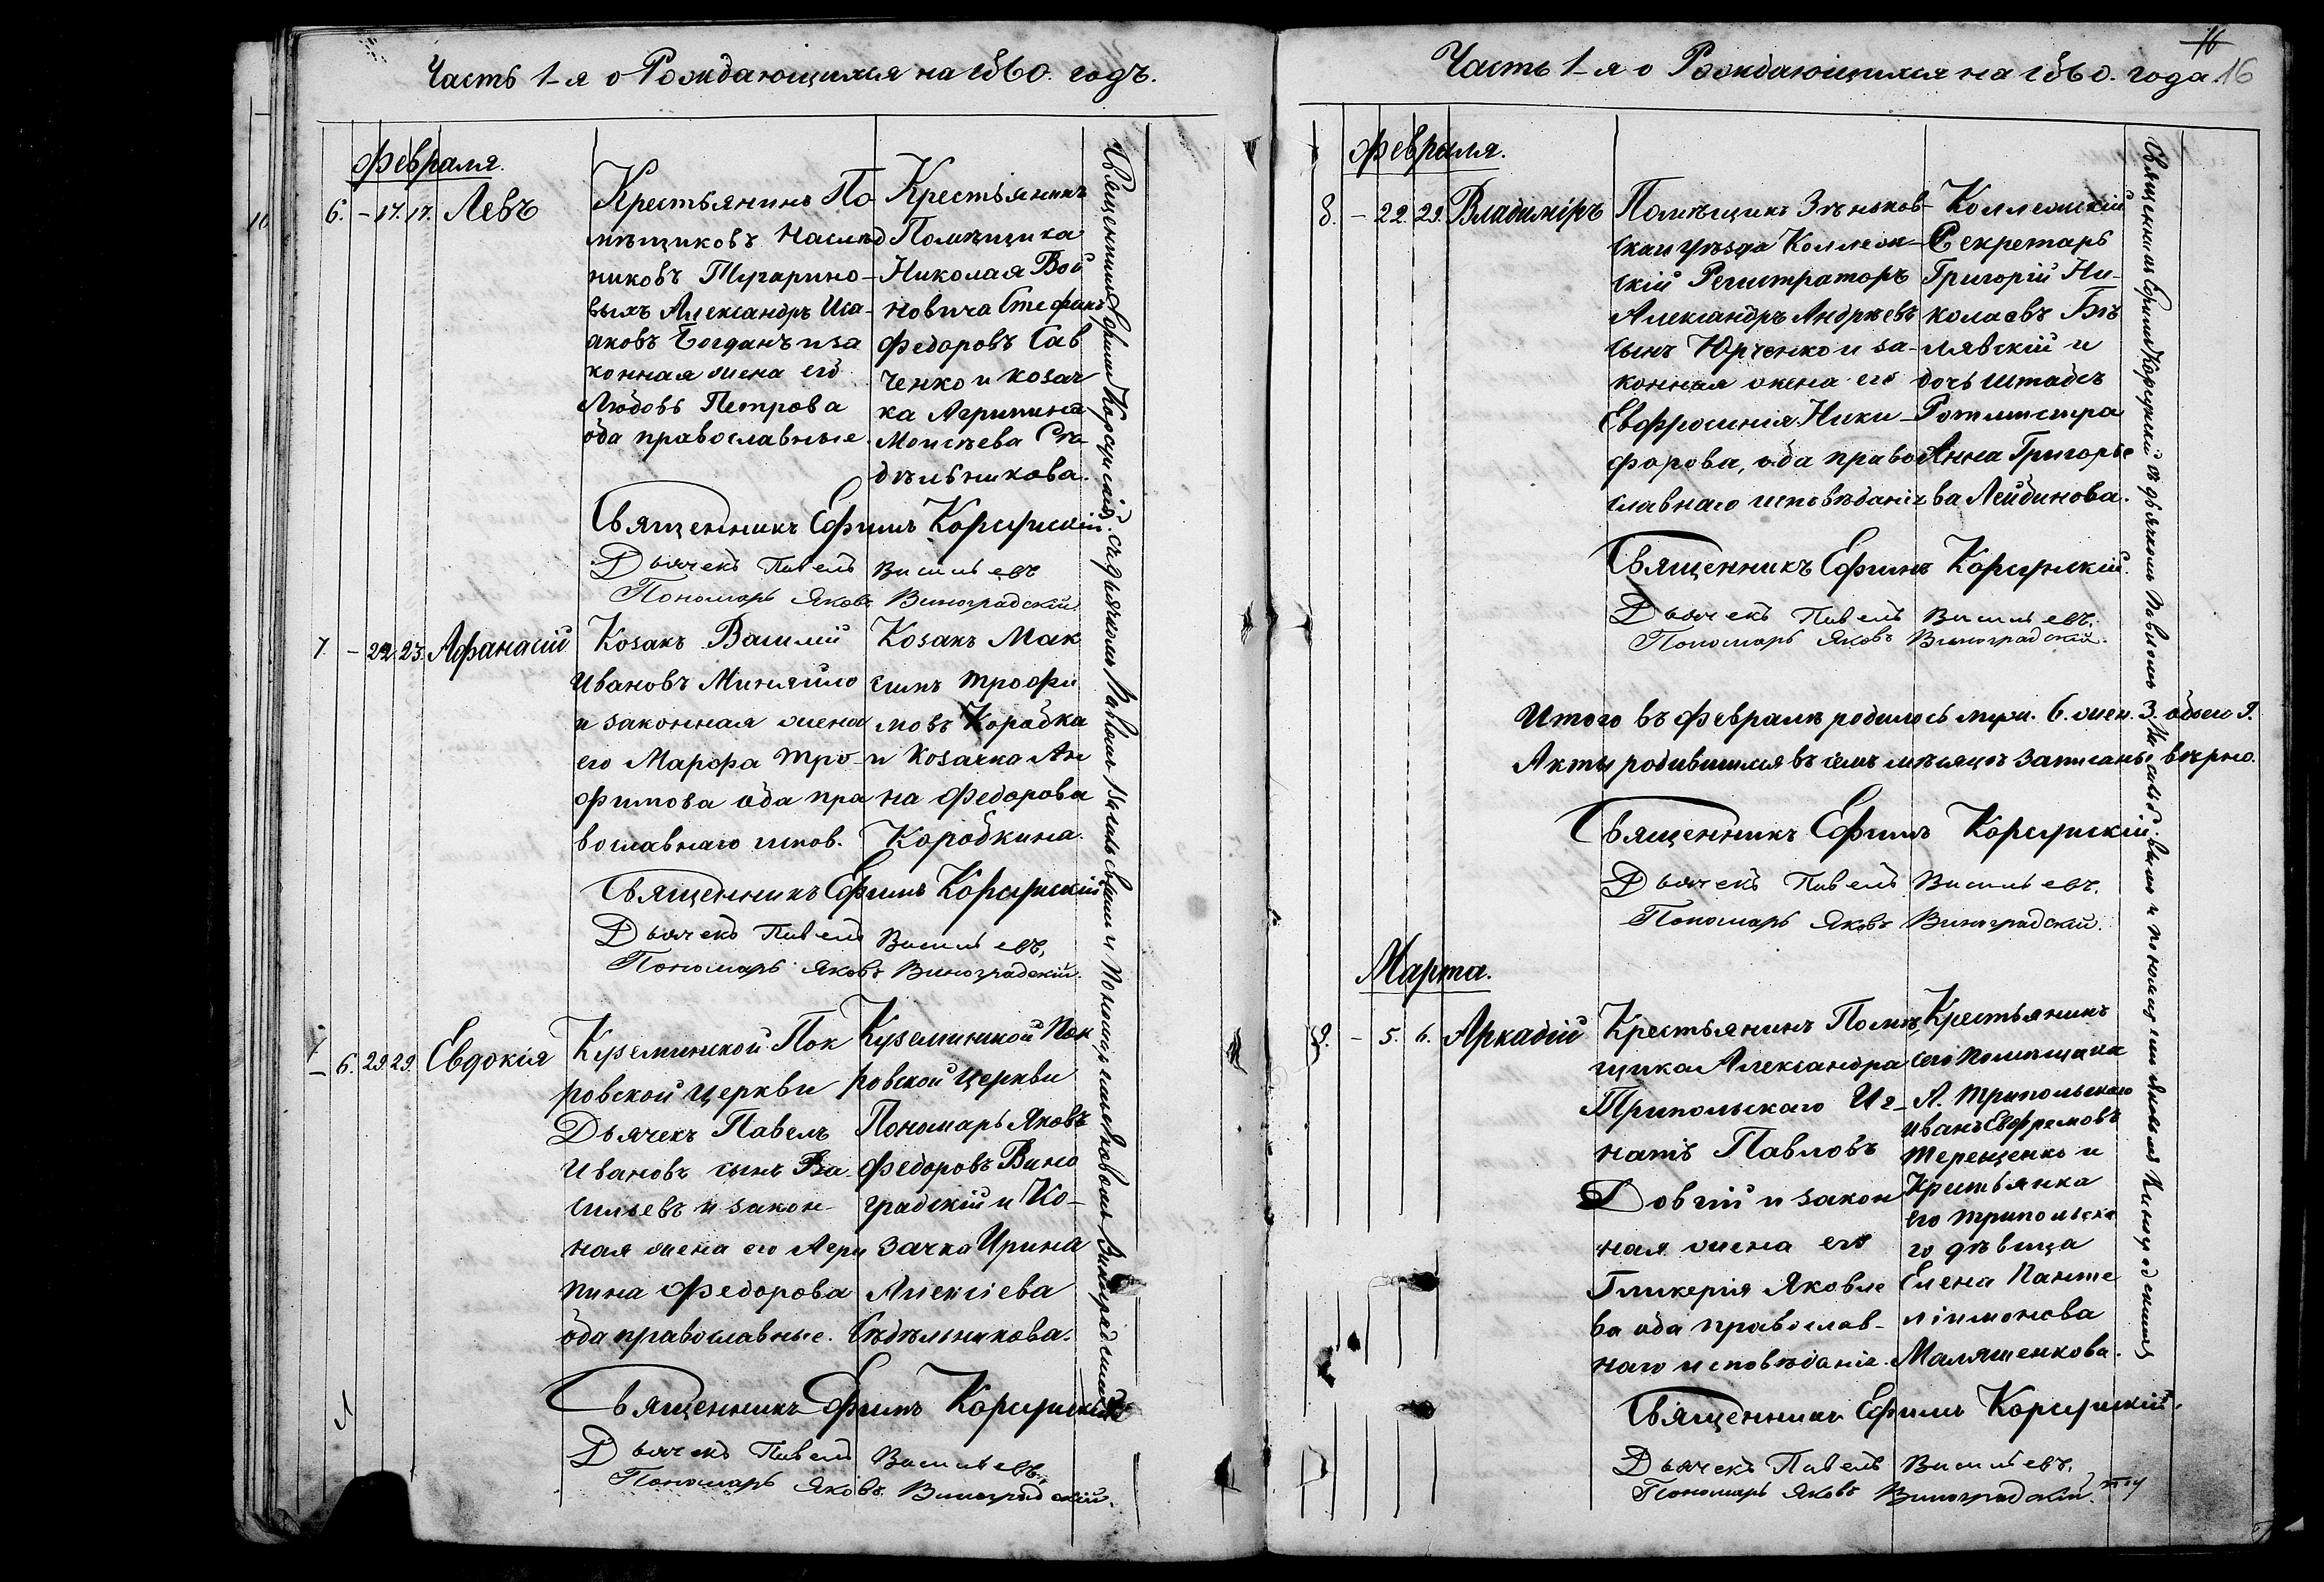 Часть 1-я о Рождающихся на 1860. годъ.
Февраля.
6. – 17. 17. Левъ
Крестьянинъ По
мѣщиковъ Наслѣд
никовъ Тугарино-
выхъ Александръ Иса-
аковъ Богданъ и за
конная жена его
Любовь Петрова
оба православные.
Крестьянинъ
Помѣщика
Николая Вой
новича Стефанъ
Федоровъ Сав
ченко и козач
ка Агрипина
Моисѣева
дѣльникова.
Священникъ Ефимъ Корсунскій.
Дьячекъ Павелъ Васильевъ
Пономарь Яковъ Виноградскій.
7. – 22. 23. Афанасій
Козакъ Василій
Ивановъ Миняйло
и законная жена
его Марфа Тро-
фимова оба пра
вославнаго испов.
Козакъ Мак
симъ Трофи
мовъ Коробка
и Козачка Ан
на Федорова
Коробкина.
Священникъ Ефимъ Корсунскій
Дьячекъ Павелъ Васильевъ,
Пономарь Яковъ Виноградскій.
– 6. 29. 29. Евдокія
Куземинской Пок
ровской церкви
Дьячекъ Павелъ
Ивановъ сынъ Ва-
сильевъ и закон-
ная жена его Агри
пина Федорова
оба православные.
Куземинской Пок
ровской церкви
Пономарь Яковъ
Федоровъ Вино
градскій и Ко-
зачка Ирина
Алексіева
Сѣдѣльникова.
Священникъ Ефимъ Корсунскій
Дьячекъ Павелъ Васильевъ,
Пономарь Яковъ Виноградскій.
Священникъ Ефимъ Корсунскій съ дьячкомъ Павломъ Васильевымъ и Пономаремъ Яковомъ Виноградскимъ
16
Часть 1-я о Рождающихся на 1860. года 16
Февраля.
8. – 22. 29. Владиміръ
Помѣщикъ Зѣньков-
скаго уѣзда Коллеж-
скій Регистраторъ
Александръ Андрѣевъ
сынъ Юрченко и за-
конная жена его
Евфросинія Ники-
форова, оба право
славнаго исповѣданія
Коллежскій
Секретарь
Григорій Ни-
колаевъ Бѣ
лявскій и
дочь штабсъ
Ротмистра
Анна Григорье
ва Лейбинова.
Священникъ Ефимъ Корсунскій.
Дьячекъ Павелъ Васильевъ.
Пономарь Яковъ Виноградскій.
Итого въ Февралѣ родилось муж. 6. жен. 3. обоего 9.
Акты родившихся въ семъ мѣсяцѣ записаны вѣрно.
Священникъ Ефимъ Корсунскій.
Дьячекъ Павелъ Васильевъ.
Пономарь Яковъ Виноградскій.
Марта.
9. – 5. 6. Аркадій
Крестьянинъ Помѣ
щика Александра
Трипольскаго Иг-
натъ Павловъ
Довгій и закон
ная жена его
Гликерія Яковле
ва оба православ-
наго исповѣданія.
Крестьянинъ
сего Помѣщика
А. Трипольскаго
Иванъ Ефремовъ
Терещенко и
Крестьянка
его Трипольска
го дѣвица
Елена Панте
лімонова
Маляшенкова.
Священникъ Ефимъ Корсунскій.
Дьячекъ Павелъ Васильевъ.
Пономарь Яковъ Виноградскій.
Священникъ Ефимъ Корсунскій съ дьячкомъ Павломъ Васильевымъ и пономаремъ Яковомъ Виноградскимъ